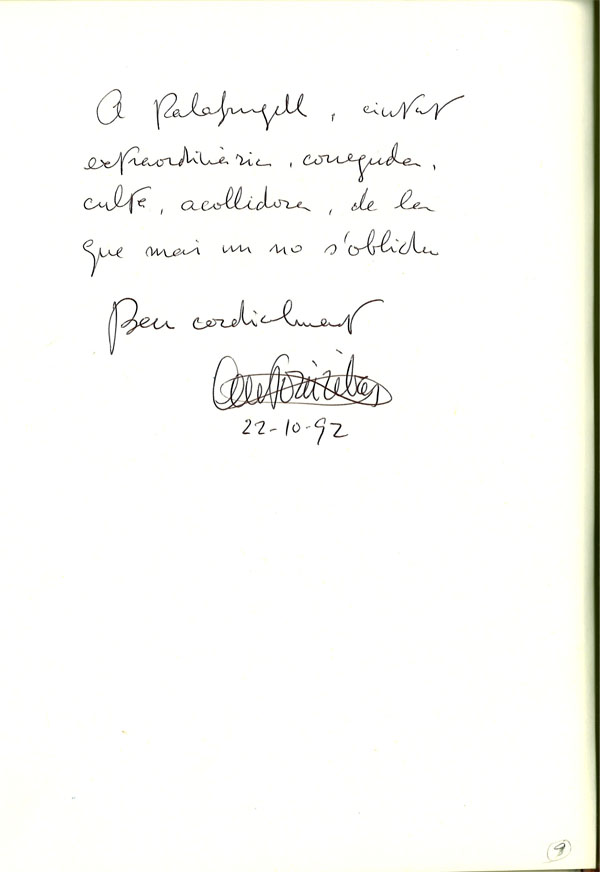 A Palafrugell, ciutat
extraordinària, coneguda,
culta, acollidora, de la
que mai un no s'oblida
Ben cordialment
22-10-92